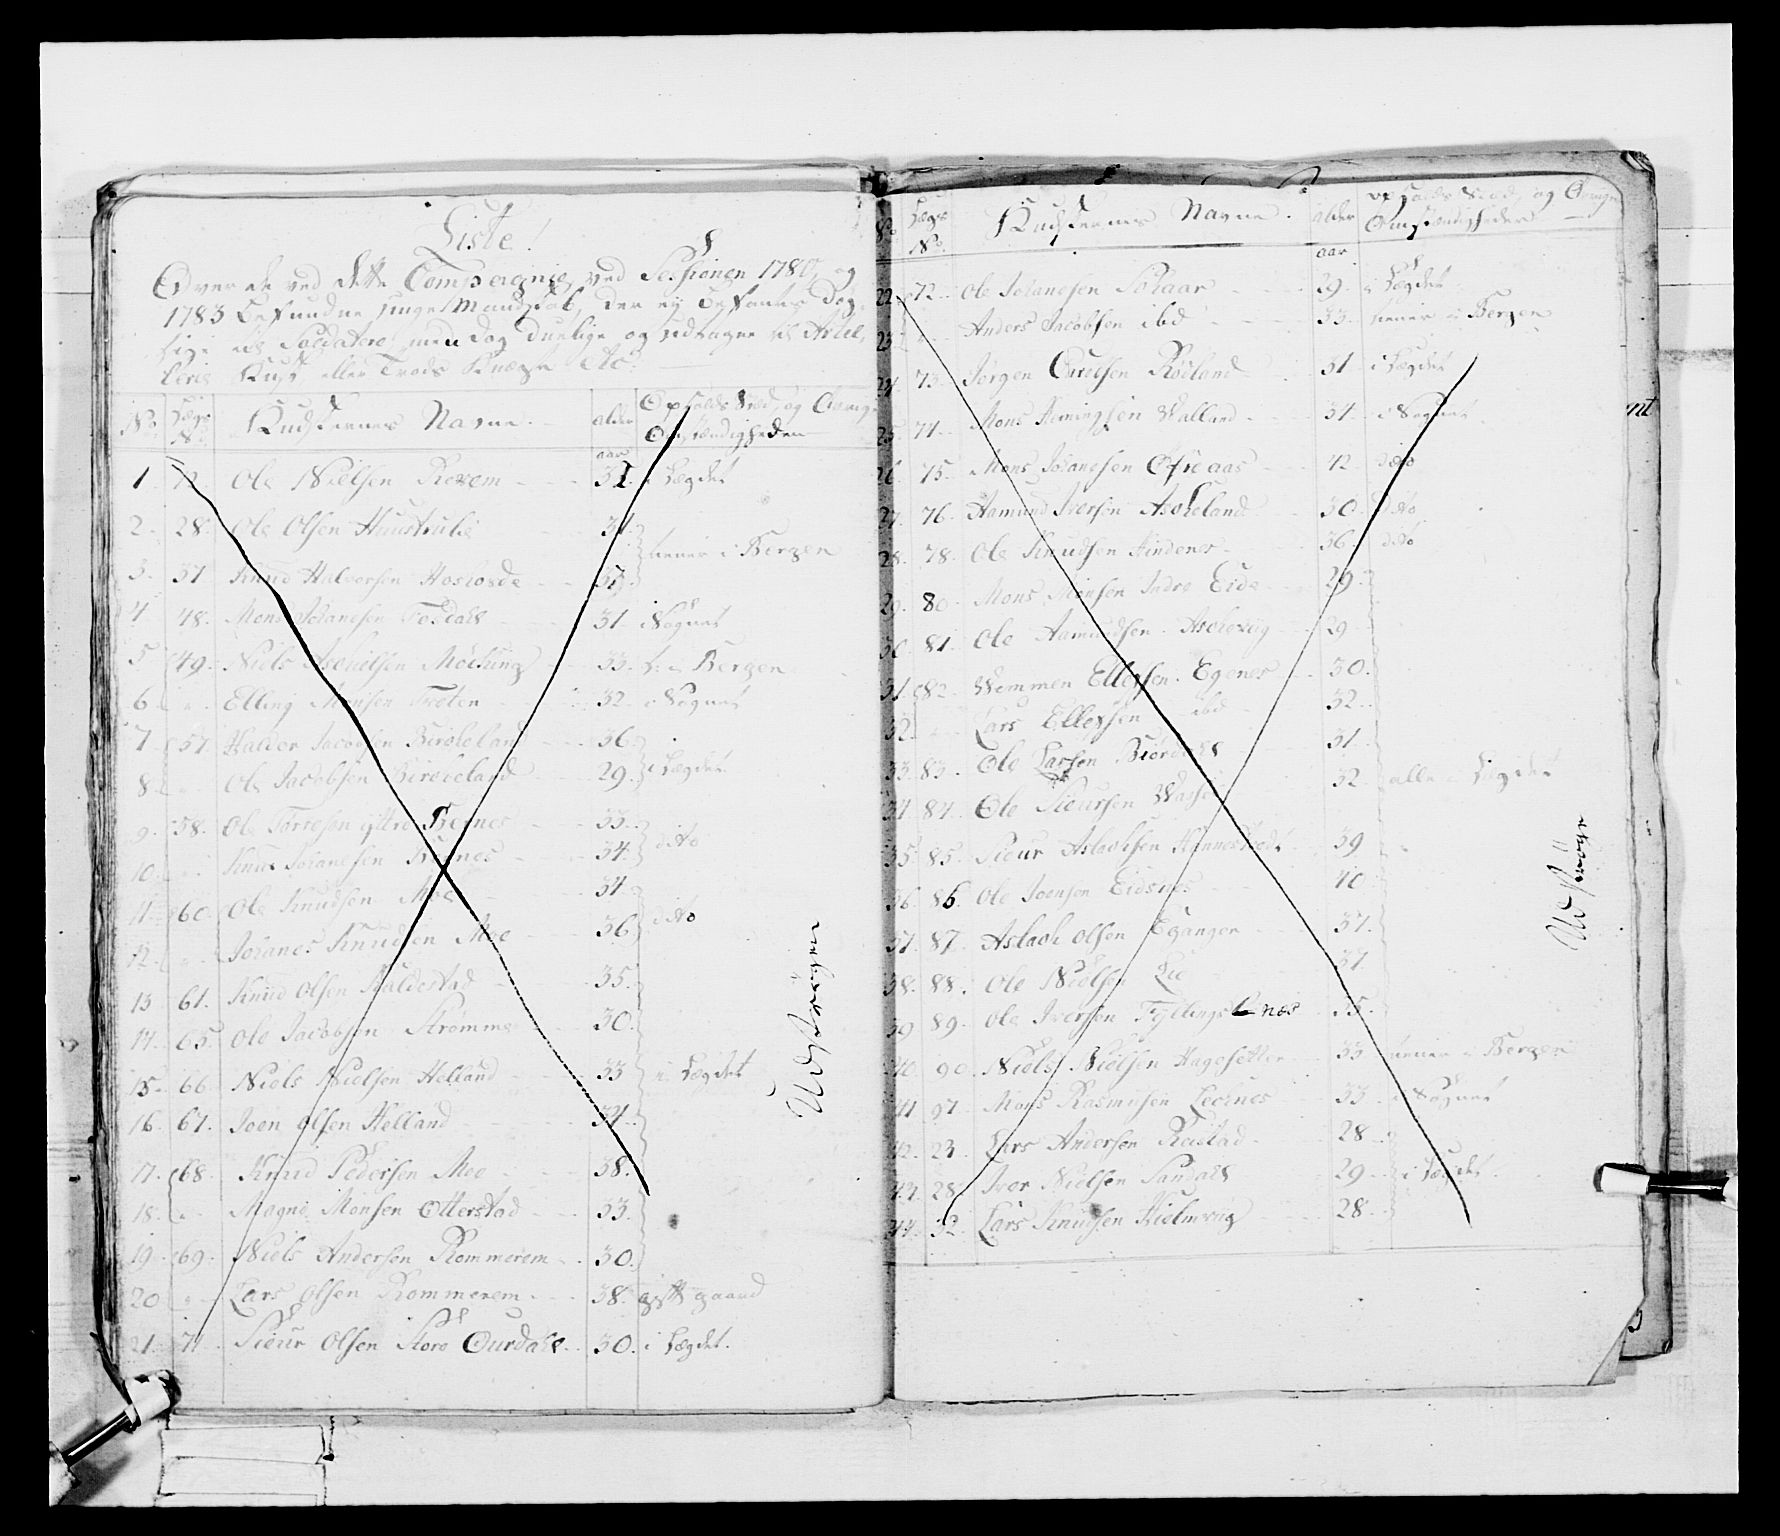 Liste!
Over de ved dette Compagnie ved Sessionen 1780, og
1783 befundne unge Mandskab, der ej befantes dog
lige til Soldatere, men dog duelige og udtagne til Artil,
lerie Kudsk eller Trods Knægte etc:
No Lægs No Kudskernes Navne alder aar Opholds Sted, og Øvrige Omstændigheder
1. Ole Nielsen Revem 31 i Lægdet
2. 28. Ole Olsen 31
3. 37 Knud Halvorsen 33. tiener i Bergen
4 48. Mons Johannesen Fosdahl 31 i Sognet
5 49. Niels Askielsen Møching 33. t. i Bergen
6 " Elling Monsen Træten 32 i Sognet
7 57 Halder Jacobsen Birkeland 36.
8. " Ole Jacobsen Birkeland 29. i Lægdet
9. 58. Ole Torresen yttre Bernes 33.
10. " Knud Johannesen Bernes 34. dito
11. 60. Ole Knudsen Moe 34
12. " Johannes Knudsen Moe 36 dito
13 61. Knud Olsen Kaldestad 35.
14. 65 Ole Jacobsen Strømme 30.
15. 66 Niels Nielsen Helland 33 i Lægdet
16. 67. Joen Olsen Helland 34.
17. 68. Knud Pedersen Moe 38.
18. " Magne Monsen Otterstad 33.
19. 69. Niels Andersen Rommerem 30.
20 " Lars Olsen Rommerem 38. gift gaard
21. 71 Siur Olsen Store Ourdahl 30. i Lægdet.
Udstrøgen
No Lægs No Kudskernes Navne. alder aar opholds Sted, og Øvrige Omstændigheder
22. 72. Ole Johannesen 29. i Lægdet
23. " Anders Jacobsen ibd 33. tiener i Bergen
24 73. Jørgen Rødland 31 i Lægdet
25. 74. Mons Hemingsen Walland 34. i Sognet
26. 75. Mons Johannesen Ofreaas 42. dito
27. 76. Aamund Iversen Askeland 30. dito
28. 78. Ole Knudsen Hindenes 36 dito
29. 80. Mons Monsen Indre Eide 29.
30. 81. Ole Aamundsen Askevig 29
31. 82. Wemmen Ellefsen Egenes 30.
32. " Lars Ellefsen ibd 32.
33. 83. Ole Larsen Biørdahl 31
34. 84. Ole Siursen 32. alle i Lægdet
35. 85. Siur Aslachsen 39
36. 86. Ole Joensen Eidsnes 40.
37. 87. Aslach Olsen Eganger 37.
38. 88. Ole Nielsen Lie 37.
39 89. Ole Iversen Fyllingsnes 35.
40. 90. Niels Nielsen Hagesetter 33 tiener i Bergen
41 97. Mons Rasmusen Lechnes 33 i Sognet
42. 23. Lars Andersen Reistad 28
43. 28 Iver Nielsen Sandahl 29 i Lægdet
44. 32. Lars Knudsen Hielmvig 28
Udstrøge
nt